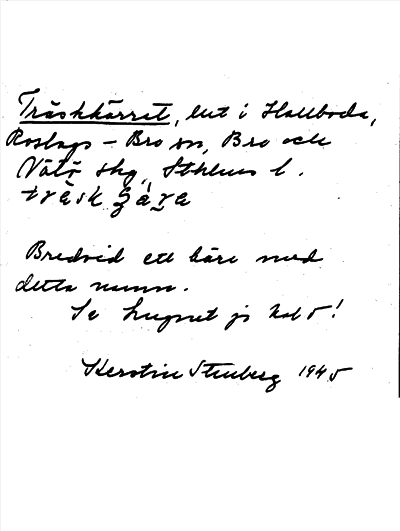 Träskkärret, lut i Hallboda,
Roslags-Bro sn, Bro och
Vätö skg, Sthlms l.
träsk
Bredvid ett kärr med
detta namn.
Se
Kerstin Stenberg 1945